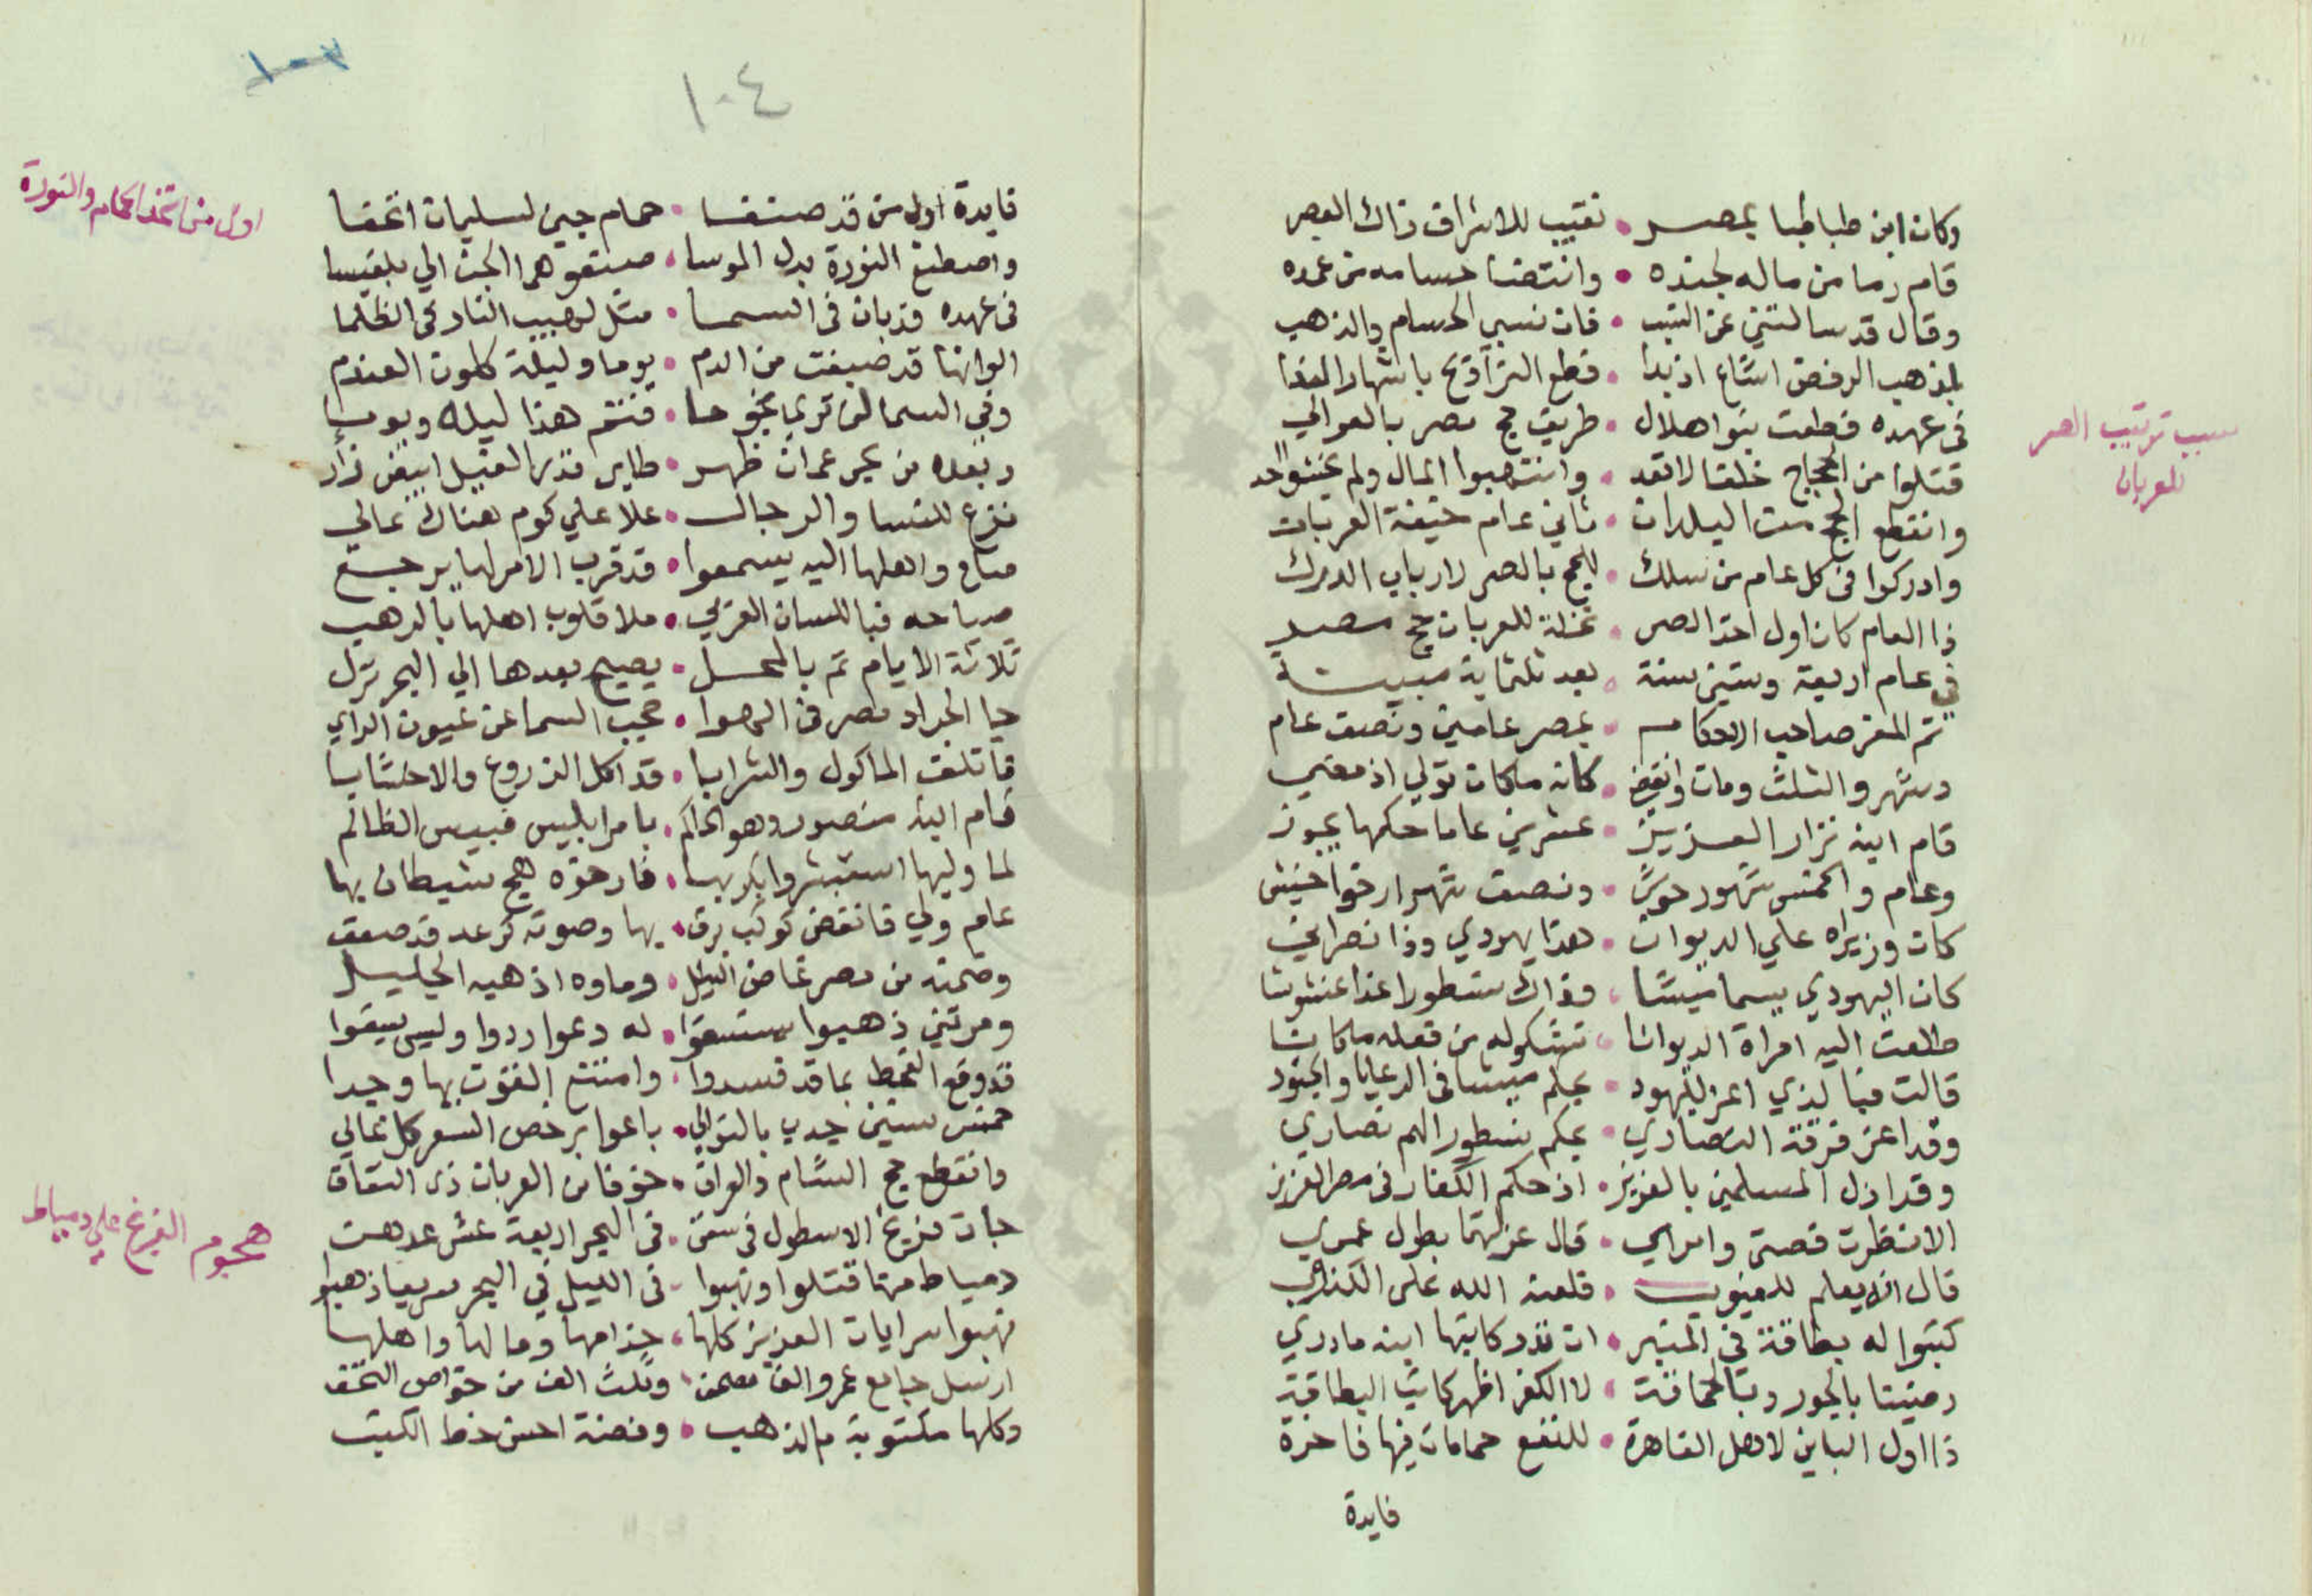 وكان ابن طباطبا بمصر • نقيب للاشراف ذاك العصر
قام رما من ماله لجنده • وانتضا حسامه من غمده
وقال قد سالتني عن النسب • فان نسبي الحسام والذهب
بمذهب الرفض اشاع اذ بدا • قطع التراويح باشهار الندا
في عهده قطعت بنوا هلال • طريق حج مصر بالعوالي
قتلوا من الحجاج خلقا لا تعد • وانتهبوا المال ولم يخشوا احد
وانقطع الحج من البلدان • ثاني عام خيفة العربان
وادركوا في كل عام من سلك • للحج بالصر لارباب الدرك
ذا العام كان اول اخذ الصر • للعربان حج مصر
في عام اربعة وستين سنة • بعد ثلثماية مبينة
ثم المعز صاحب الاحكام • بمصر عامين ونصف عام
وشهر والثلث ومات وانقضي • كانه ما كان تولي اذ مضي
قام ابنه نزار العزيز • عشرين عاما حكمها يجوز
وعام والخمس شهور • ونصف شهر ارخوا
كان وزيراه علي الديوان • هذا يهودي وذا نصراني
كان اليهودي يسما ميشا • وذاك نسطورا غدا
طلعت اليه امراة الديوانا • تشكوله من فعله ما كانا
قالت فبالذي اعز لليهود • بحكم ميشا في الرعايا والجنود
وقد اعز فرقة النصاري • بحكم نسطور الهم نصاري
وقد اذل المسلمين بالعزيز • اذ حكم الكفار في مصر العزيز
الا نظرت قصتي وامري • قال عزلتهما بطول عمري
قال انا لا يعلم للغيوب • فلعنة الله على الكذوب
كتبوا له بطاقة في المنبر • ان تدر كاتبها ابنه ما دري
رضينا بالجور وبالحماقة • لا الكفر اظهر كاتب البطاقة
ذا اول الباين لاهل القاهرة • للنفع حمامات فيها فاخرة
فايدة
سبب ترتيب الصر
للعربان
١٠٣
١٠٤
فايدة اول من قد صنفا • حمام جين لسليمان اتحفا
واصطنع النورة بدل الموسا • صنعوها الجن الي بلقيسا
في عهده قد بان في السما • مثل لهيب النار في الظلما
الوانها قد صبغت من الدم • يوما وليلة كلون العندم
وفي السما لن تري نجوما • فتتم هذا ليله ويوما
وبعده من بحر عمران ظهر • طاير قدر الفيل ابيض
فزع للنسا والرجال • علا علي كوم هناك عالي
صاح واهلها اليه يسمعوا • قد قرب الامر لها يرجع
صياحه فباللسان العربي • ملا قلوب اهلها بالرهب
ثلاثة الايام ثم بالمحل • يصيح بعدها الي البحر نزل
جا الجراد مصر في الهوا • حجب السما عن عيون الراي
فاتلف الماكول والشرابا • قد اكل الزروع والاخشابا
قام ابنه منصور وهو الحاكم • بامر ابليس فبيس الظالم
لما وليها استبشروا بكربها • فارخوه هيج شيطان بها
عام ولي فانقض كوكب برق • بها وصوته كرعد قد صعق
وضحته من مصر غاض النيل • وماوه اذهبه الجليل
ومرتين ذهبوا يستسقوا • له دعوا ردوا وليس يسقوا
قد وقع القحط بما قد فسدوا • وامتنع القوت بها وجدا
خمس سنين جدب بالتوالي • باعوا برخص السعر كل غالي
وانقطع حج الشام والعراق • خوفا من العربان ذي النفاق
جات فريغ الاسطول في سفن • في البحر اربعة عشر عدهن
دمياط منها قتلوا ونهبوا • في الليل في البحر سريعا ذهبوا
نهبوا سرايات العزيز كلها • خدامها ومالها واهلها
ارسل جامع عمرو الف مصحف • وثلث الف من خواص التحف
وكلها مكتوبة بالذهب • وفضة احسن خط الكتب
اول من اتخذ الحمام والنورة
هجوم الفرنج علي دمياط